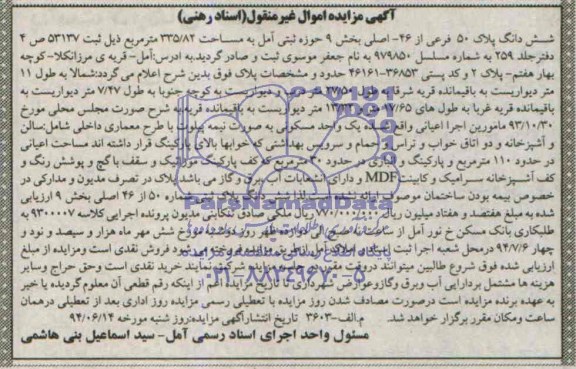 آگهی مزایده اموال غیر منقول(اسناد رهنی)
شش دانگ پلاک ۵۰ فرعی از ۴۶- اصلی بخش ۹ حوزه ثبتی آمل به مساحت ۳۳۵/۸۲ مترمربع ذیل ثبت ۵۳۱۳۷ ص ۴
دفترجلد ۲۵۹ به شماره مسلسل ۹۷۹۸۵۰ به نام جعفر موسوی ثبت و صادر گردید.به آدرس:آمل- قریه ی مرزانکلا- کوچه
بهار هفتم- پلاک ۲ و کد پستی ۳۶۸۵۳-۴۶۱۶۱ حدود و مشخصات پلاک فوق بدین شرح اعلام می گردد:شمالا به طول ۱۱
متر دیواریست به باقیمانده قریه شرقا به طول ۲۷/۵۰ متر درب و دیواریست به کوچه جنوبا به طول ۷/۴۷ متر دیواریست به
باقیمانده قریه غربا به طول های ۱۷/۶۵ متر دیواریست به باقیمانده قریه.به شرح صورت مجلس محلی مورخ
۹۳/۱۰/۳۰ مامورین اجرا اعیانی واقع شده یک واحد مسکونی به صورت نیمه پیلوت با طرح معماری داخلی شامل:سالن
و آشپزخانه و دو اتاق خواب و تراس و حمام و سرویس بهداشتی که خوابها بالای پارکینگ قرار داشته اند مساحت اعیانی
در حدود ۱۱۰ مترمربع و پارکینگ و انباری در حدود ۳۰ مترمربع که کف پارکینگ موزائیک و سقف با گچ و پوشش رنگ و
کف آشپزخانه سرامیک و کابینت MDF و دارای انشعابات آب و برق و گاز می باشد.پلاک در تصرف مدیون و مدارکی در
خصوص بیمه بودن ساختمان موصوف ارائه نشده است.لذا شش دانگ پلاک شماره ۵۰ از ۴۶ اصلی بخش ۹ ارزیابی
شده به مبلغ هفتصد و هفتاد میلیون ریال ۷۷۰/۰۰۰/۰۰۰ ریال ملکی صادق تنکابنی مدیون پرونده اجرایی کلاسه ۹۳۰۰۰۰۷ به
طلبکاری بانک مسکن خ نور آمل از ساعت ۹ صبح الی دوازده ظهر روز دوشنبه مورخ شش مهر ماه هزار و سیصد و نود و
چهار ۹۴/۷/۶ درمحل شعبه اجرا ثبت اسناد و املاک آمل از طریق مزایده فروخته می شود فروش نقدی است ومزایده از مبلغ
ارزیابی شده فوق شروع طالبین میتوانند در وقت مقرر در جلسه مزایده شرکت نمایند خرید نقدی است وحق حراج وسایر
هزینه ها مشتمل بردارایی آب وبرق وگازوعوارض شهرداری تا تاریخ مزایده اعم از اینکه رقم قطعی آن معلوم گردیده یا خیر
به عهده برنده مزایده است درصورت مصادف شدن روز مزایده با تعطیلی رسمی مزایده روز اداری بعد از تعطیلی درهمان
ساعت ومکان مقرر برگزار خواهد شد. م.الف-۳۶۰۳ تاریخ انتشارآگهی مزایده:روز شنبه مورخه ۹۴/۰۶/۱۴
مسئول واحد اجرای اسناد رسمی آمل- سید اسماعیل بنی هاشمی
ParsNamadData
پایگاه اطلاع رسانی مناقصه و مزایده
۰۲۱-۸۸۳۴۹۶۷۰-۵